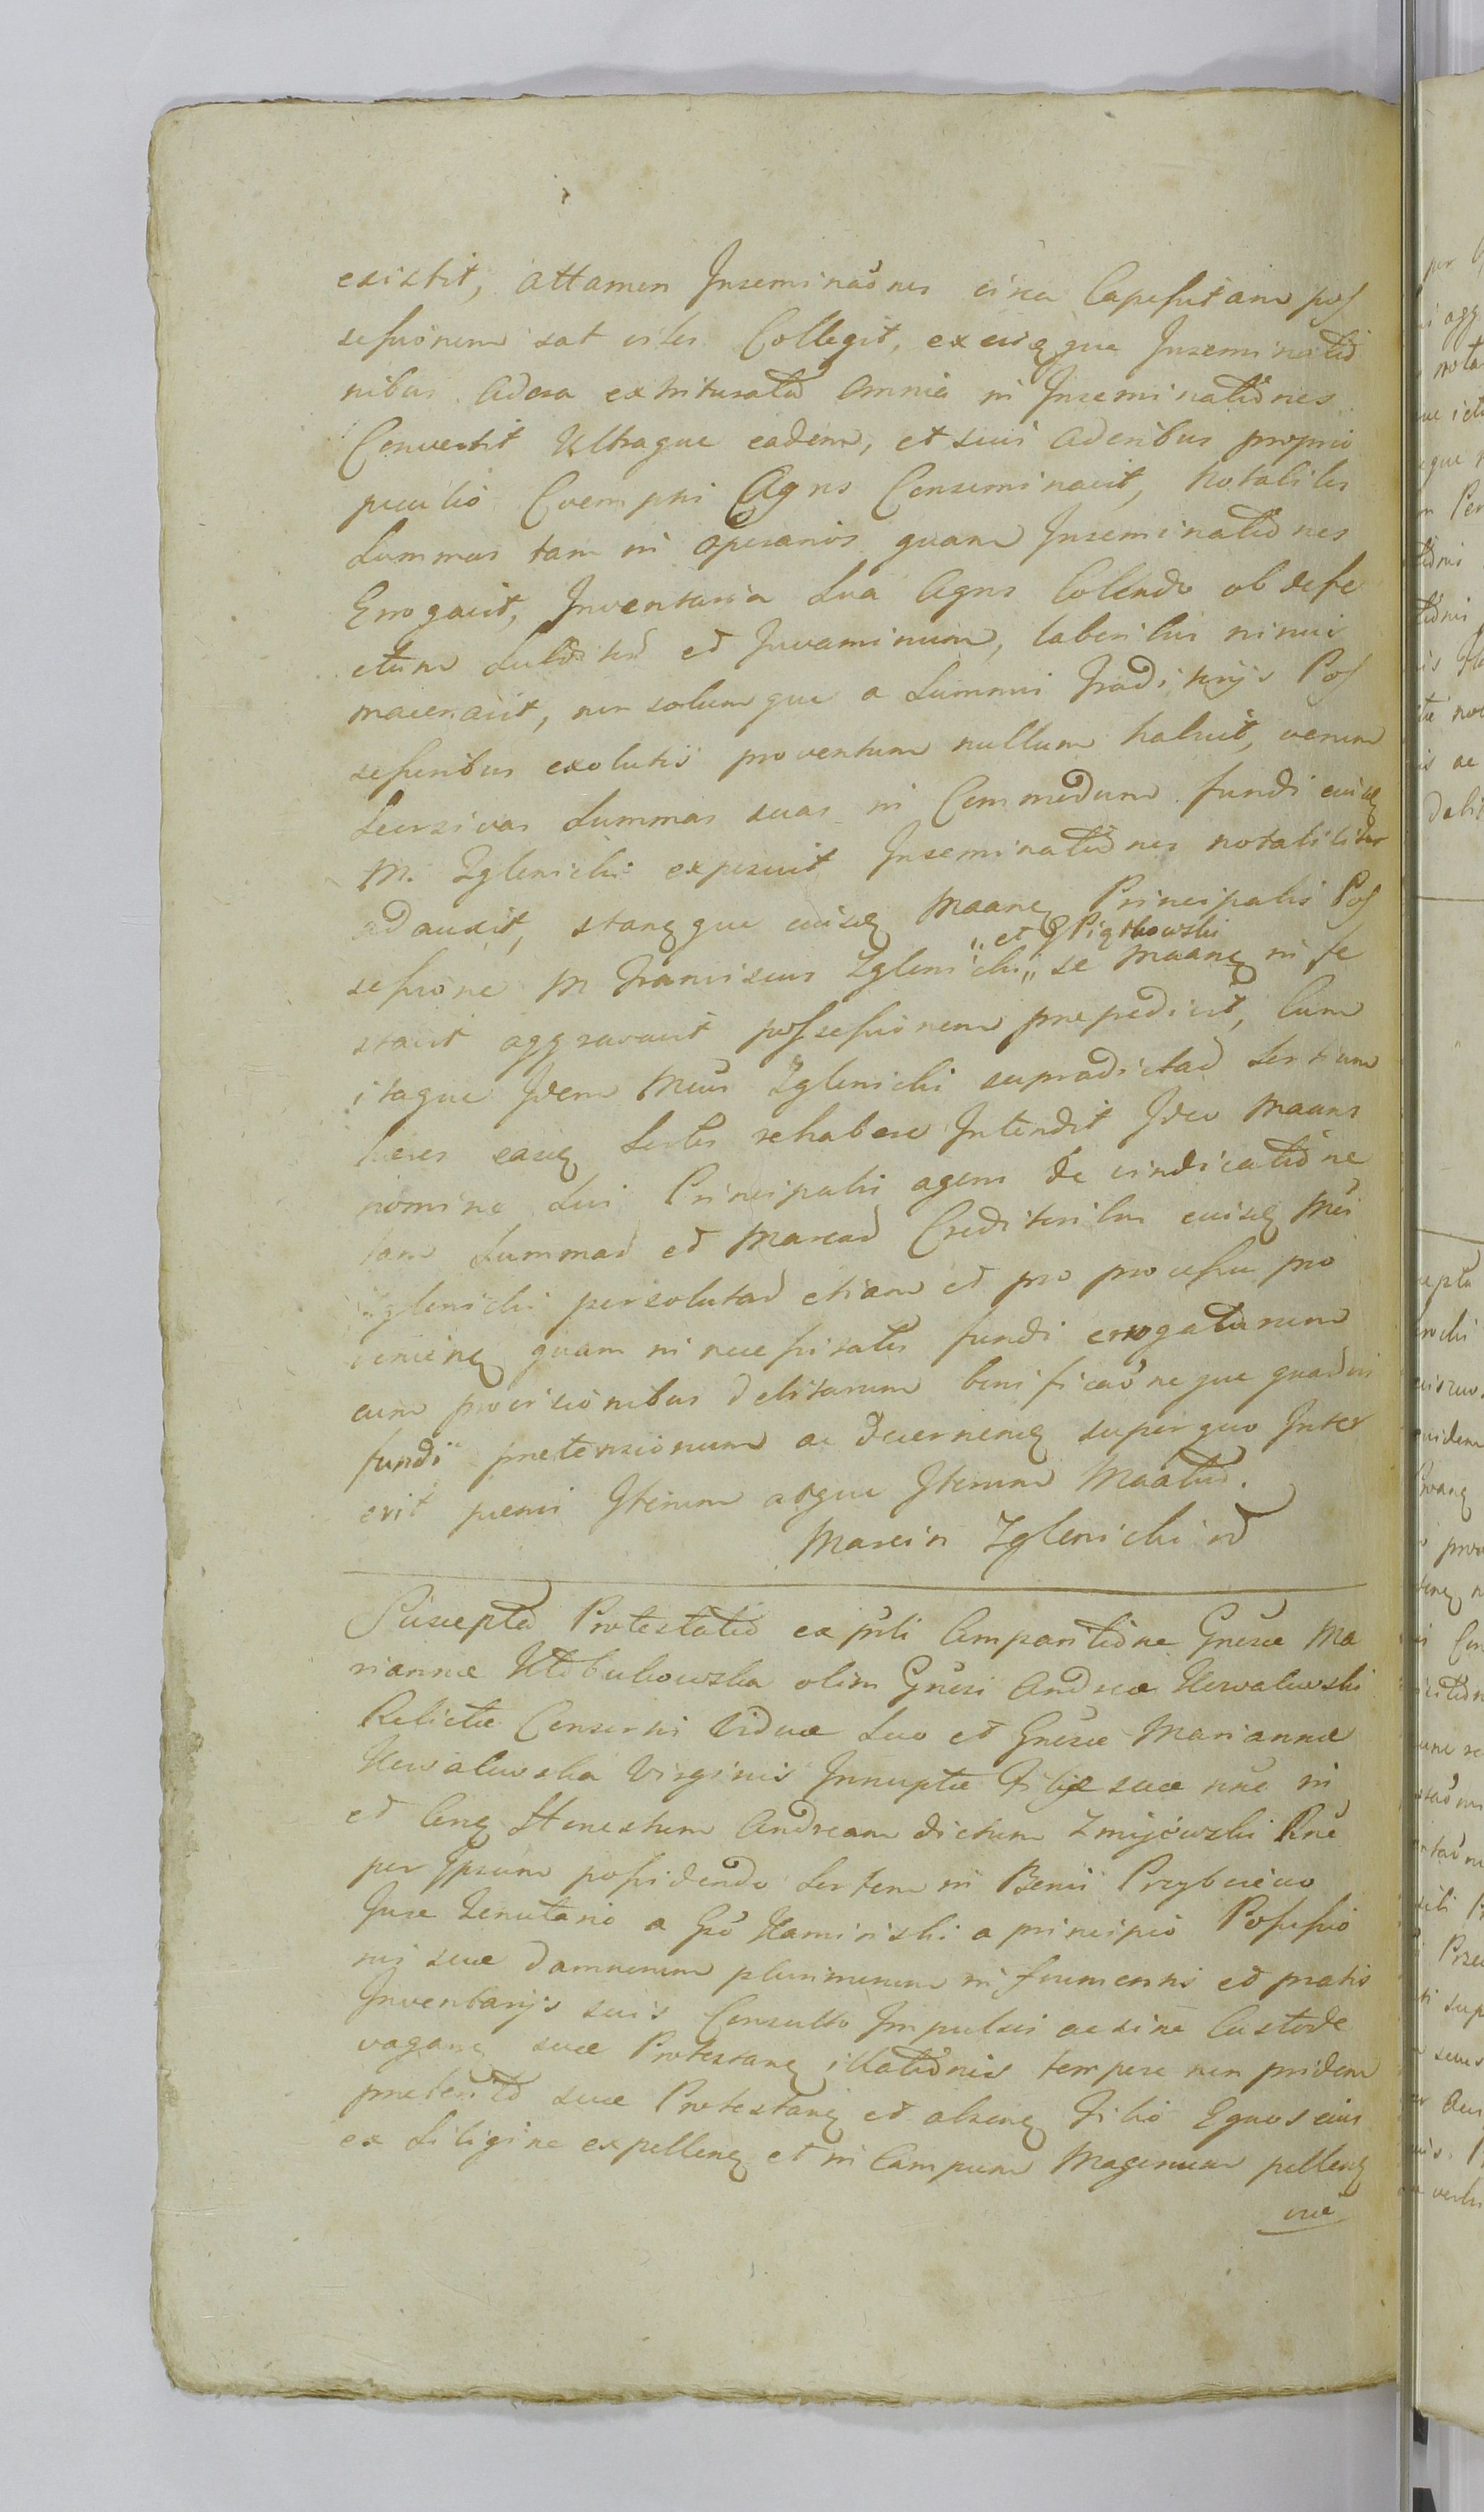 existit, attamen Inseminaõnes circa Capeſsitam poſ
seſsionem sat viles Collegit, ex eisq que Inseminatio
nibus Adora extriturata omnia in Inseminationes
Convertit Ultraque eadem, et suis Adoribus proprio
peculio Coempti Agros Conseminavit, Notabiles
Summas tam in operarios quam Inseminationes
Errogavit, Inventaria Sua Agros Colendo ob defe
ctum Subditor et Juvaminum, laboribus nimis
maceravit, non solum que a Summis Traditorijs Poſ
seſsoribus exolutis proventum nullum habuit, verum
Seorsivas Summas suas in Commodum fundi eiusq
M. Zglenicki exposuit Inseminationes notabiliter
adauxit, stanqque eiusq Maanq Principalis Poſ
seſsione M Franciscus Zglenicki „et G Piątkowski„ se Maanq in fe
stavit aggravavit poſseſsionem prepedivit, Cum
itaque Idem Mcus Zglenicki supradictar Sortium
heres easq Sortes rehabere Intendit Ideo Maans
nomine Sui Principalis agens de vindicatione
tam Summar et Marcar Creditoribus eiusq Mci
Zglenicki persolutar etiam et pro proceſsu pro
venienq quam in neceſsitates fundi errogatarum
cum provisionibus debitarum bonificaõneque quarvis
fundi pretensionum ac decernenq super quo Inter
erit poenis Iterum atque Iterum Maatur.
Marcin Zglenicki
Suscepta Protestatio ex pñli Comparitione Gnosæ Ma
riannæ olim Gnosi Andreæ Kowalewski
Relictæ Consortis Viduæ Suo et Gnosæ Mariannæ
Kowalewska Virginis Innuptæ Filiæ suæ nõe in
et Conq Honestum Andream dictum Zmijowski
per Ipsum poſsidendo Sortem in Bonis Przyborowo
Jure Tenutario a Gso Kaminski a principio Poſseſsio
nis suæ damnorum plurimorum in frumentis et pratis
Inventarijs suis Consulto Impulsis ac sine Custode
vaganq suæ Protestanq illationis tempore non pridem
preterito suæ Protestanq et absenq Filio Equos eius
ex Siligine expellenq et in Campum pellenq